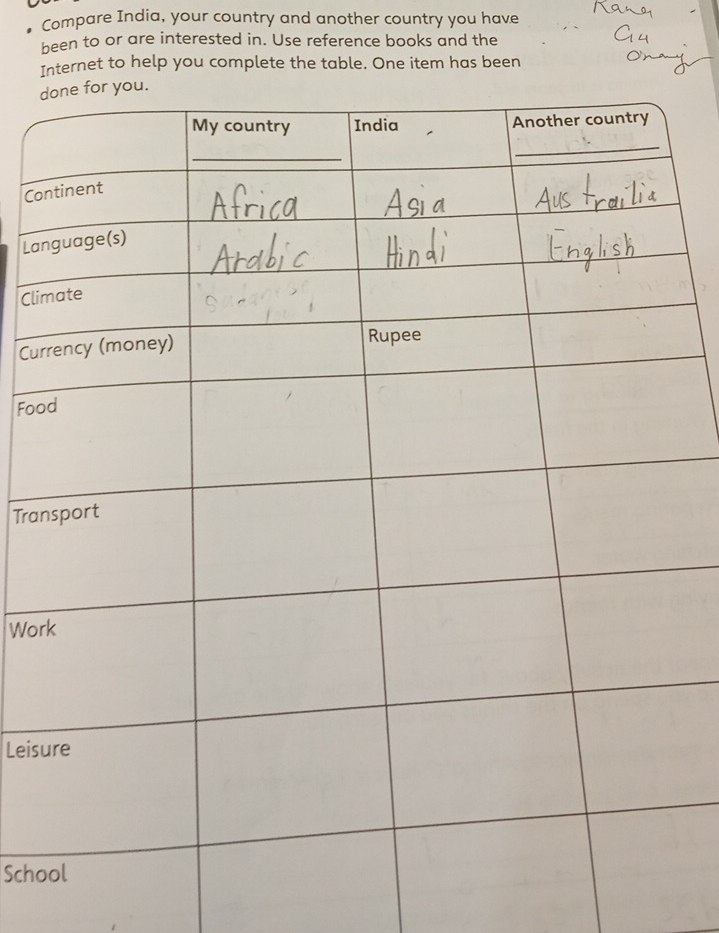 • Compare India, your country and another country you have
been to or are interested in. Use reference books and the
Internet to help you complete the table. One item has been
done for you.
My country India Another country
Continent Africa Asia Austrailia
Language(s) Arabic Hindi English
Climate
Currency (money) Rupee
Food
Transport
Work
Leisure
School